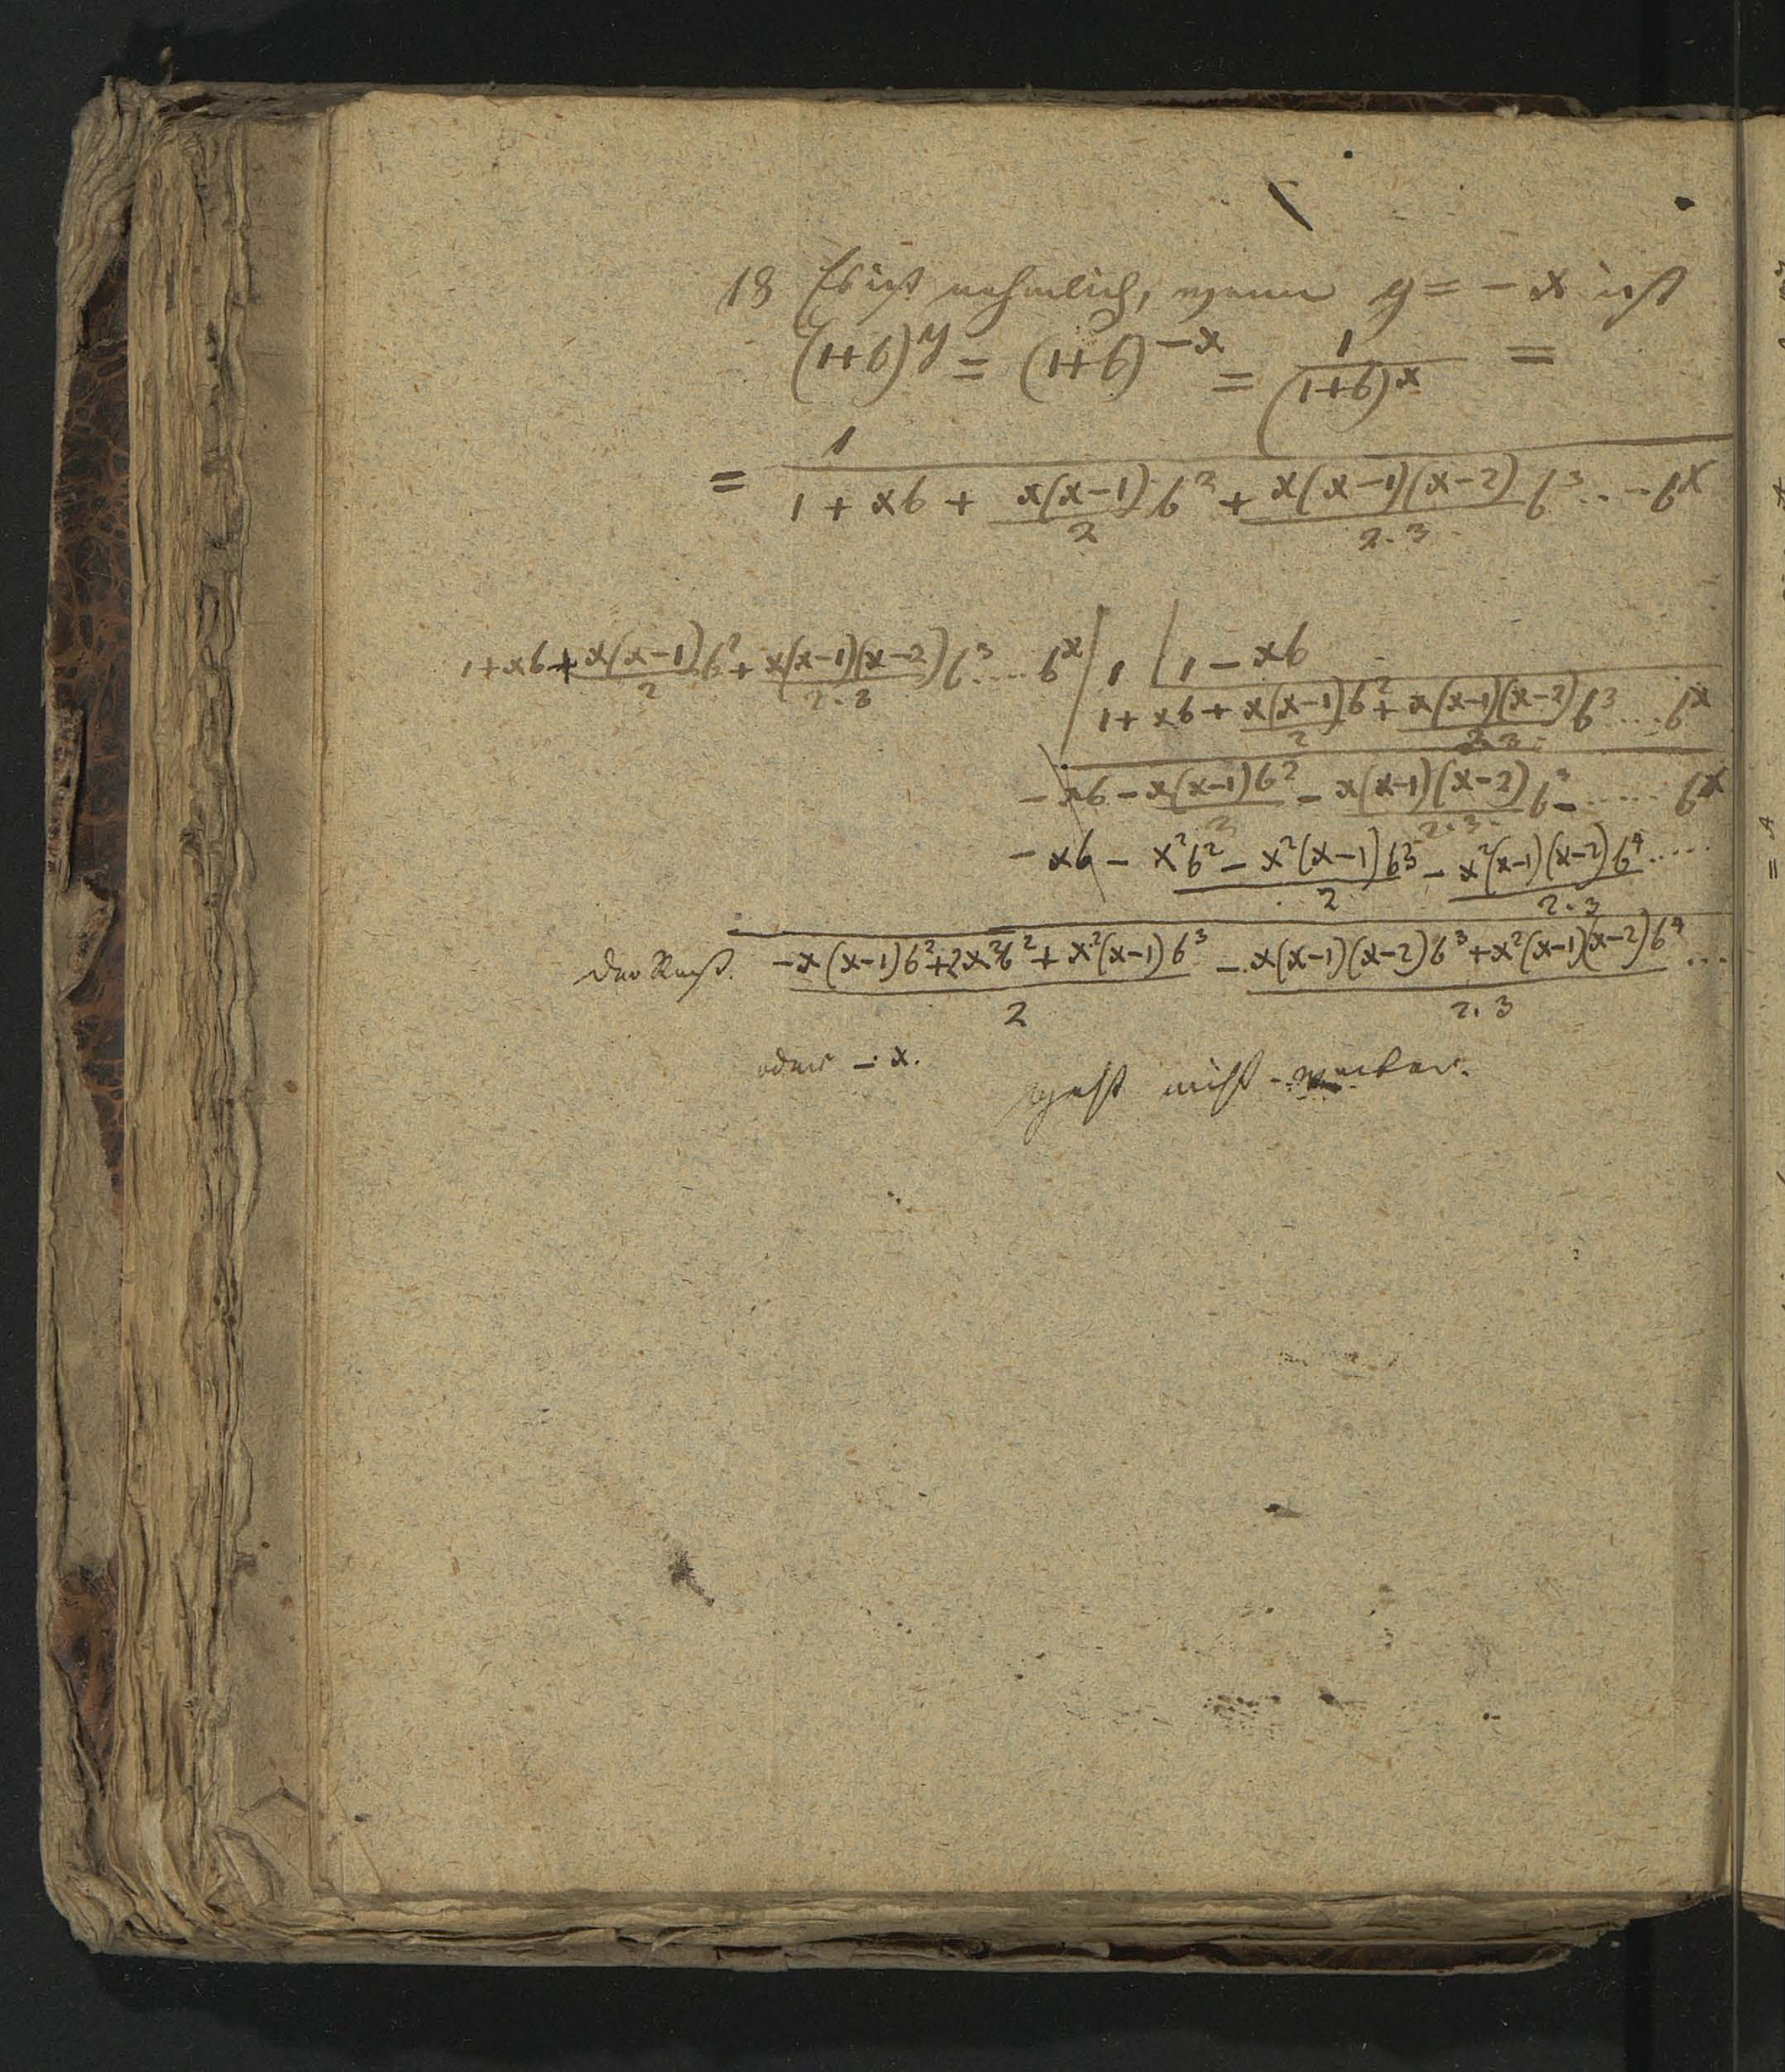 18 Es ist nehmlich, wenn y = − x ist
(1+b)^y = (1+b)^−x = 1/(1+b)^x =
= 1/(1 + xb + x(x−1)/2 b^2 + x(x−1)(x−2)/2.3 b^3 ... − b^x)
1+xb+ x(x−1)/2 b^2 + x(x−1)(x−2)/2.3 b^3 .... b^x / 1 | 1 − xb
1 + xb + x(x−1)/2 b^2 + x(x−1)(x−2)/2.3 b^3 .... b^x
− xb − x(x−1)b^2/2 − x(x−1)(x−2)/2.3. b^3 − ..... b^x
− xb − x^2b^2 − x^2(x−1)b^3/2 − x^2(x−1)(x−2)b^4/2.3 .....
der Rest. −x(x−1)b^2+2x^2b^2+x^2(x−1)b^3/2 − x(x−1)(x−2)b^3+x^2(x−1)(x−2)b^4/2.3 ...
oder − x.
geht nicht weiter.